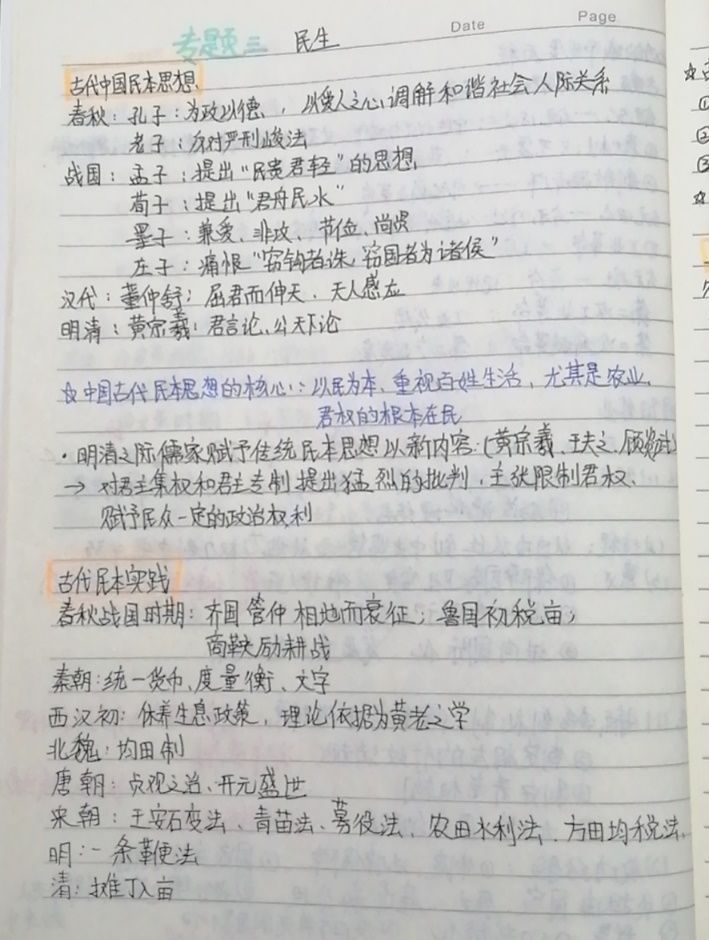 Date Page
专题三 民生
古代中国民本思想
春秋：孔子：为政以德，以爱人之心调解和谐社会人际关系
老子：反对严刑峻法
战国：孟子：提出"民贵君轻"的思想
荀子：提出"君舟民水"
墨子：兼爱、非攻、节俭、尚贤
庄子：痛恨"窃钩者诛，窃国者为诸侯"
汉代：董仲舒：屈君而伸天、天人感应
明清：黄宗羲：君害论、公天下论
☆中国古代民本思想的核心：以民为本，重视百姓生活，尤其是农业，
君权的根本在民
·明清之际儒家赋予传统民本思想以新内容（黄宗羲、王夫之、顾炎武）
→ 对君主集权和君主专制提出猛烈的批判，主张限制君权、
赋予民众一定的政治权利
古代民本实践
春秋战国时期：齐国管仲相地而衰征；鲁国初税亩；
商鞅励耕战
秦朝：统一货币、度量衡、文字
西汉初：休养生息政策，理论依据为黄老之学
北魏：均田制
唐朝：贞观之治、开元盛世
宋朝：王安石变法、青苗法、募役法、农田水利法、方田均税法、
明：一条鞭法
清：摊丁入亩